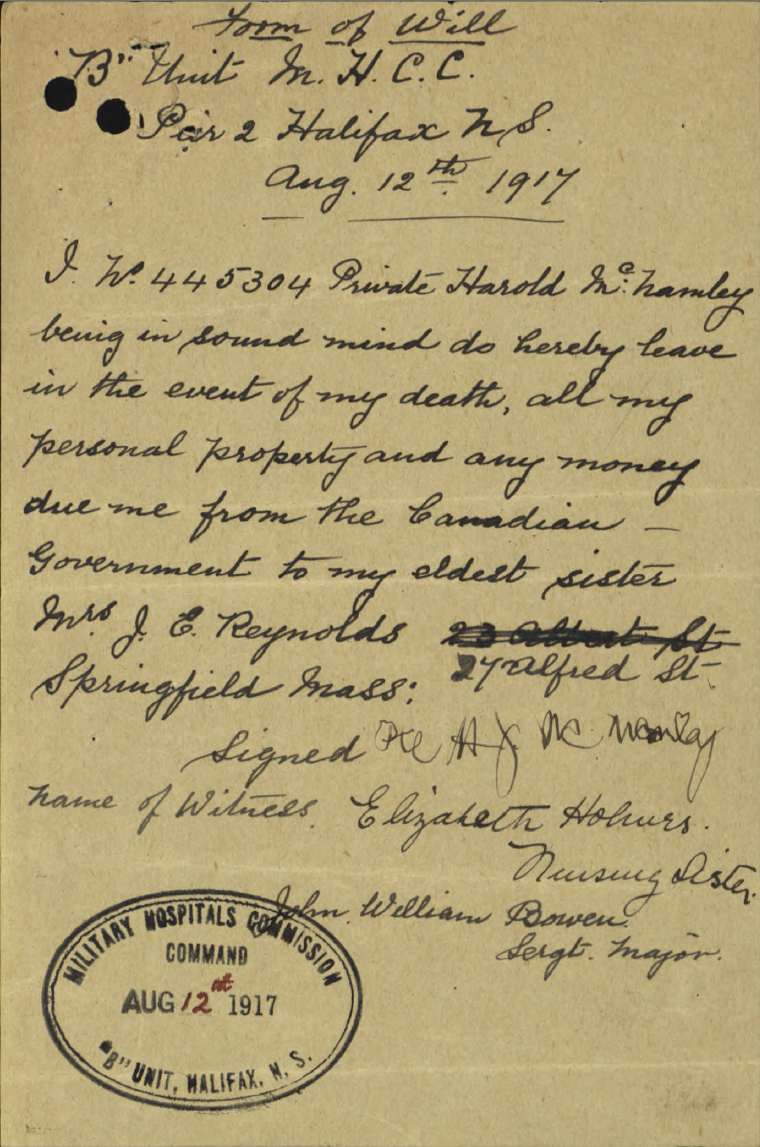 Form of Will
"B" Unit M. H. C. C.
Pier 2 Halifax N S.
Aug. 12th 1917
I. No. 445304 Private Harold Mc. Namley
being in sound mind do hereby leave
in the event of my death, all my
personal property and any money
due me from the Canadian –
Government to my eldest sister
Mrs J. E. Reynolds 23 Albert St
27 Alfred St.
Springfield Mass:
Signed Pte H J Mc
Name of Witness. Elizabeth Holmes.
Nursing Sister.
John William Bowen.
Sergt. Major.
MILITARY HOSPITALS COMMISSION
COMMAND
AUG 12th 1917
"B" UNIT, HALIFAX, N. S.